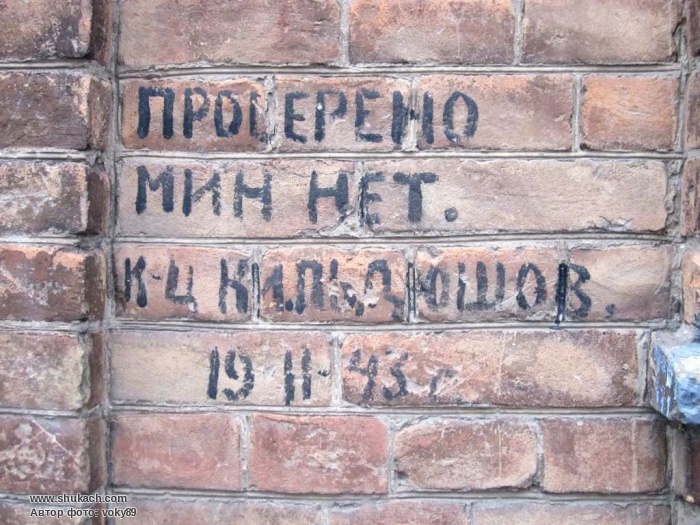 ПРОВЕРЕНО
МИН НЕТ.
К-Ц КИЛЬДЮШОВ.
19 II-43 г.
www.shukach.com
Автор фото: voky89